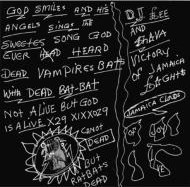 GOD SMILES AND HIS
ANGELS SINGS THE
SWEETES SONG GOD
EVER HEARD
DEAD VAMPIRES BATS
WITH DEAD RAT-BAT
NOT ALIVE BUT GOD
IS ALIVE X29 XIXXO29
NOT
DEAD
BUT
RATBATS
DEAD
DJ LEE
AND
VICTORY
OF JAMAICA
JAMAICA CLADS
FOR JOY